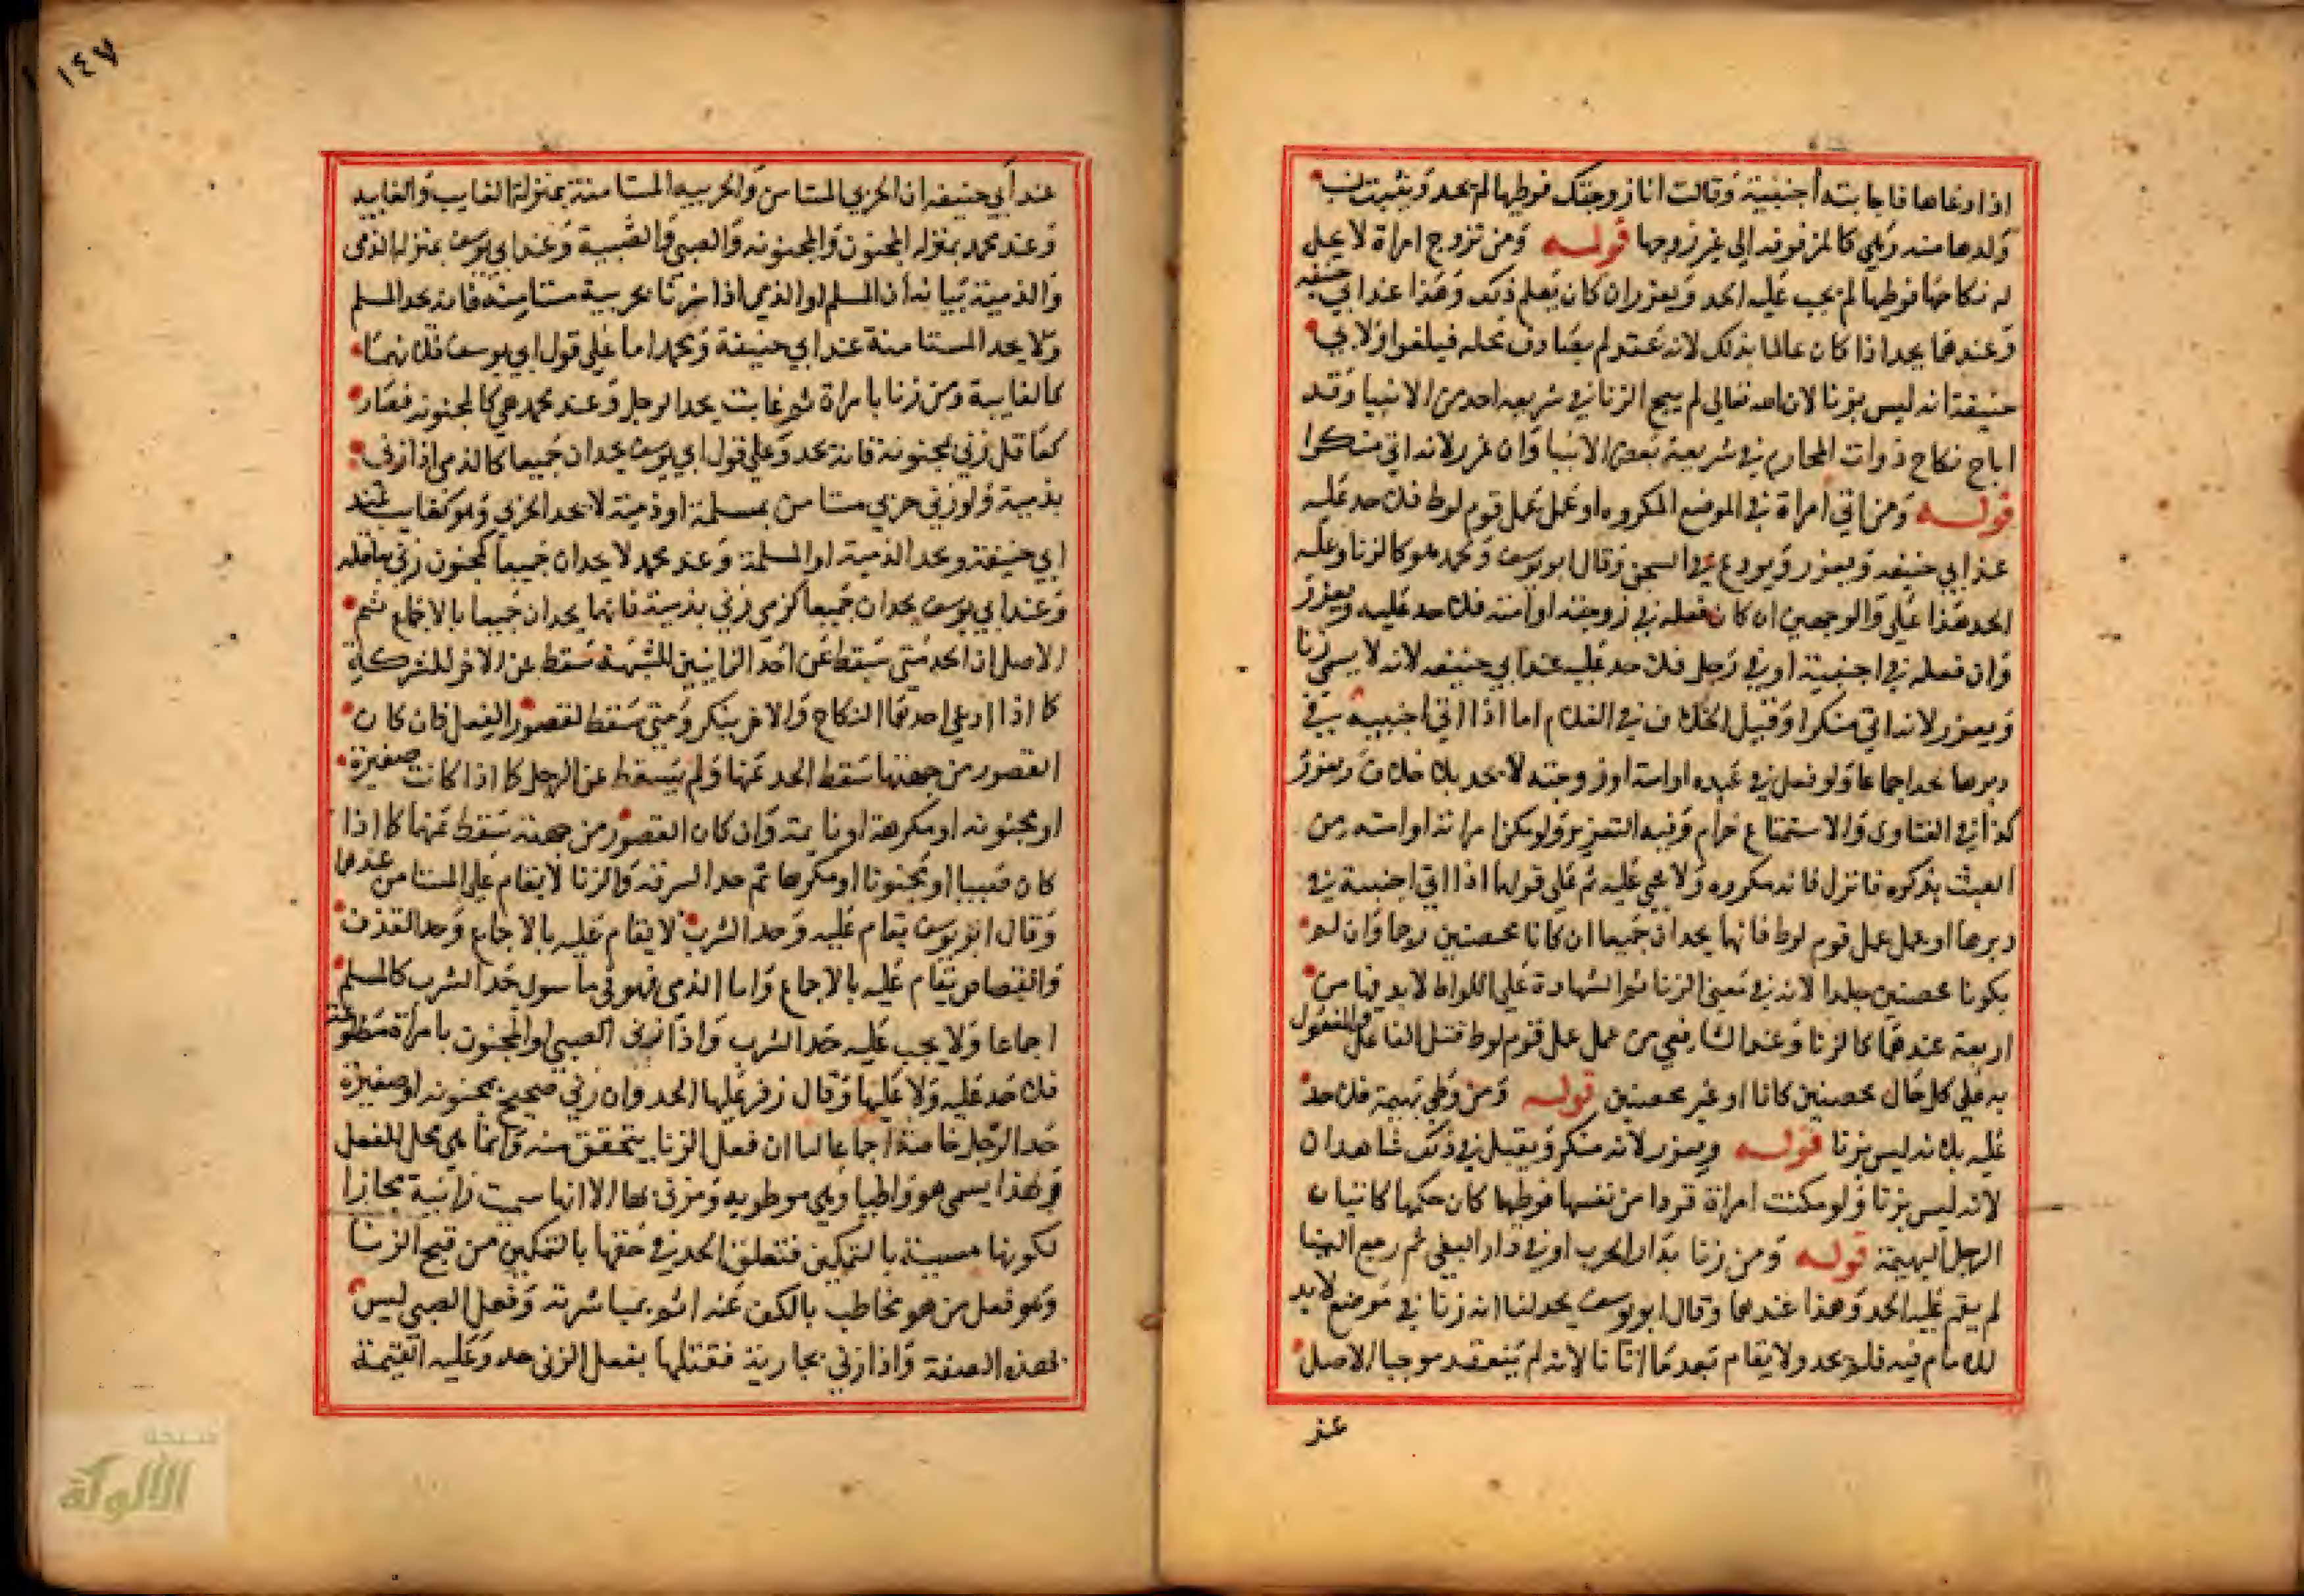 اذا دعاها فاجابته أجنبية وقالت انا زوجتك فوطيها لم يحد ويثبت نسب
ولدها منه وهي كالمزفوفه الى غير زوجها قوله ومن تزوج امراة لا يحل
له نكاحها فوطيها لم يجب عليه الحد ويعزر ان كان يعلم ذلك وهذا عند ابي حنيفه
وعندهما يحد اذا كان عالما بذلك لانه عقد لم يصادف محله فيلغوا ولابي
حنيفة انه ليس بزنا لان الله تعالى لم يبح الزنا في شريعه احد من الانبيا وقد
اباح نكاح ذوات المحارم في شريعة بعض الانبيا وان عزر لانه اتى منكرا
قوله ومن اتى امراة في الموضع المكروه او عمل عمل قوم لوط فلا حد عليه
عند ابي حنيفه ويعزر ويودع في السجن وقال ابو يوسف ومحمد هو كالزنا وعليه
الحد هذا على والوجهين ان كان فعله في زوجته او امته فلا حد عليه ويعزر
وان فعله في اجنبية او في رجل فلا حد عليه عند ابي حنيفه لانه لا يسمى زنا
ويعزر لانه اتى منكرا وقيل الخلاف في الغلام اما اذا اتى اجنبيه في
دبرها يحد اجماعا ولو فعل في عبده او امته او زوجته لا يحد بلا خلاف ويعزر
كذا في الفتاوى والاستمتاع حرام وفيه التعزير ولو مكن امراته او امته من
العبث بذكره فانزل فانه مكروه ولا شي عليه ثم على قولهما اذا اتى اجنبية في
دبرها او عمل عمل قوم لوط فانهما يحدان جميعا ان كانا محصنين رجما وان لم
يكونا محصنين جلدا لانه في معنى الزنا ثم الشهادة على اللواط لا بد فيها من
اربعة عندهما كالزنا وعند الشافعي من عمل عمل قوم لوط قتل الفاعل والمفعول
به على كل حال محصنين كانا او غير محصنين قوله ومن وطي بهيمة فلا حد
عليه بلانه ليس بزنا قوله ويعزر لانه منكر ويقبل في ذلك شاهدان
لانه ليس بزنا ولو مكنت امراة قردا من نفسها فوطيها كان حكمها كاتيان
الرجل البهيمة قوله ومن زنا بدار الحرب او في دار البغي ثم رجع الينا
لم يقم عليه الحد وهذا عندهما وقال ابو يوسف يحد لنا انه زنا في موضع لا يد
للامام فيه فلا يحد ولا يقام بعد ما اتانا لانه لم ينعقد موجبا الاصل
عند
١٤٧
عند أبي حنيفه ان الحربي المستامن والحربيه المستامنة بمنزلة الغايب والغايبه
وعند محمد بمنزله المجنون والمجنونه والصبي والصبية وعند ابي يوسف بمنزله الذمى
والذمية بيانه أن المسلم او الذمي اذا زنا بحربية مستامنة فانه يحد المسلم
ولا يحد المستامنة عند ابي حنيفة ومحمد اما على قول ابي يوسف فلانها
كالغايبة ومن زنا بامراة ثم غابت يحد الرجل وعند محمد هي كالمجنونه فصار
كعاقل زنى بمجنونة فانه يحد وعلى قول ابي يوسف يحدان جميعا كالذمى اذا زنى
بذمية ولو زنى حربي مستامن بمسلمة او ذمية لا يحد الحربي وهو كغايب عند
ابي حنيفة ويحد الذمية او المسلمة وعند محمد لا يحدان جميعا كمجنون زنى بعاقله
وعند ابي يوسف يحدان جميعا كذمي زنى بذمية فانهما يحدان جميعا بالاجماع ثم
الاصل ان الحد متى سقط عن احد الزانيين للشبهة سقط عن الاخر للشركة
كما اذا ادعى احدهما النكاح والاخر ينكر ومتى سقط لقصور الفعل فان كان
القصور من جهتها سقط الحد عنها ولم يسقط عن الرجل كما اذا كانت صغيرة
او مجنونه او مكرهة او نايمة وان كان القصور من جهته سقط عنهما كما اذا
كان صبيا او مجنونا او مكرها ثم حد السرقة والزنا لا يقام على المستامن عندهما
وقال ابو يوسف يقام عليه وحد الشرب لا يقام عليه بالاجماع وحد القذف
والقصاص يقام عليه بالاجماع واما الذمى فهو في ما سوى حد الشرب كالمسلم
اجماعا ولا يجب عليه حد الشرب واذا زنى الصبي او المجنون بامراة مطاوعة
فلا حد عليه ولا عليها وقال زفر عليها الحد وان زنى صحيح بمجنونه او صغيرة
حد الرجل خاصة اجماعا لنا ان فعل الزنا يتحقق منه وانما هي محل للفعل
ولهذا يسمى هو واطيا وهي موطويه ومزنى بها الا انها سميت زانية مجازا
لكونها مسببة بالتمكين فتعلق الحد في حقها بالتمكين من قبح الزنا
وهو فعل من هو مخاطب بالكف عنه اثم بمباشرته وفعل الصبي ليس
بهذه الصفة واذا زنى بجارية فقتلها بفعل الزنى حد وعليه القيمة
شبكة
الألوكة